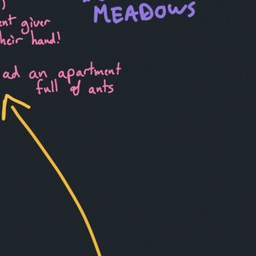 MEADOWS
giver
their hand!
ad an apartment
full of ants